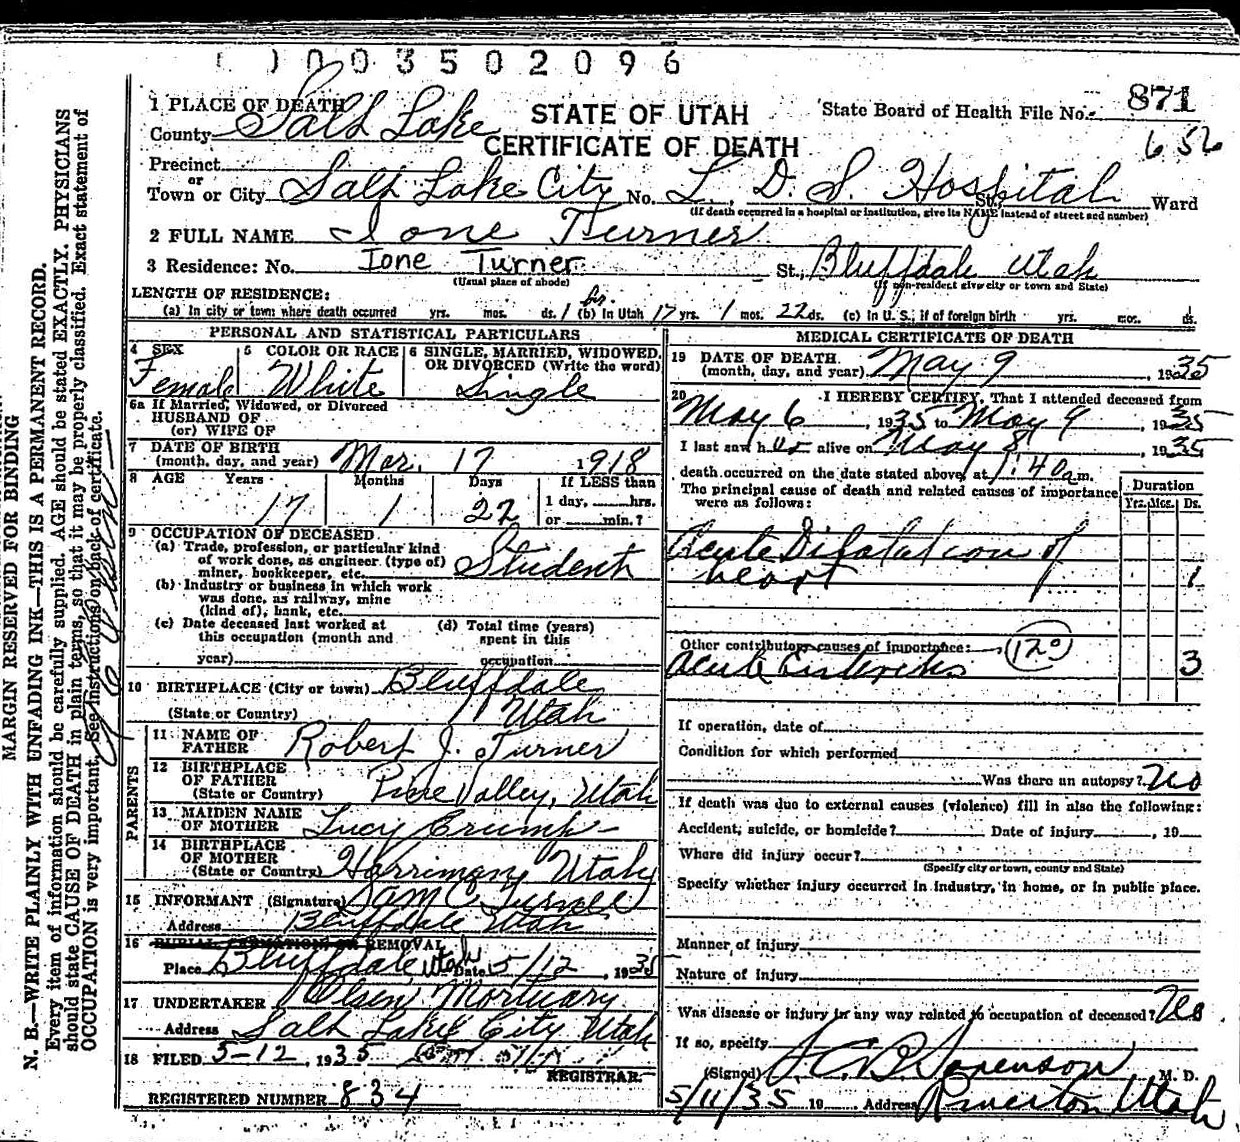 003502096
871
656
1 PLACE OF DEATH
STATE OF UTAH
CERTIFICATE OF DEATH
State Board of Health File No.
County Salt Lake
Precinct
or
Town or City Salt Lake City No. L. D. S. Hospital St., Ward
(If death occurred in a hospital or institution, give its NAME instead of street and number)
2 FULL NAME Ione Turner
3 Residence: No. Ione Turner St., Bluffdale Utah
(Usual place of abode) (If non-resident give city or town and State)
LENGTH OF RESIDENCE:
(a) In city or town where death occurred yrs. mos. ds. 1 hr. (b) In Utah 17 yrs. 1 mos. 22 ds. (c) In U. S., if of foreign birth yrs. mos. ds.
PERSONAL AND STATISTICAL PARTICULARS
4 SEX Female
5 COLOR OR RACE White
6 SINGLE, MARRIED, WIDOWED, OR DIVORCED (Write the word) Single
6a If Married, Widowed, or Divorced
HUSBAND OF
(or) WIFE OF
7 DATE OF BIRTH
(month, day, and year) Mar. 17 1918
8 AGE Years 17 Months 1 Days 22 If LESS than
1 day, hrs.
or min.?
9 OCCUPATION OF DECEASED
(a) Trade, profession, or particular kind
of work done, as engineer (type of)
miner, bookkeeper, etc. Student
(b) Industry or business in which work
was done, as railway, mine
(kind of), bank, etc.
(c) Date deceased last worked at
this occupation (month and
year)
(d) Total time (years)
spent in this
occupation
10 BIRTHPLACE (City or town) Bluffdale
(State or Country) Utah
PARENTS
11 NAME OF
FATHER Robert J. Turner
12 BIRTHPLACE
OF FATHER
(State or Country) Pine Valley, Utah
13 MAIDEN NAME
OF MOTHER Lucy Crump
14 BIRTHPLACE
OF MOTHER
(State or Country) Harriman, Utah
15 INFORMANT (Signature) Sam C Turner
Address Bluffdale Utah
16 BURIAL, CREMATION, OR REMOVAL
Place Bluffdale Utah Date 5/12, 1935
17 UNDERTAKER Olsen Mortuary
Address Salt Lake City Utah
18 FILED 5-12, 1935
REGISTRAR.
REGISTERED NUMBER 834
MEDICAL CERTIFICATE OF DEATH
19 DATE OF DEATH
(month, day, and year) May 9, 1935
20 I HEREBY CERTIFY, That I attended deceased from
May 6, 1935 to May 9, 1935
I last saw her alive on May 8, 1935
death occurred on the date stated above, at 1:40 a m.
The principal cause of death and related causes of importance
were as follows:
Duration
Yrs. Mos. Ds.
Acute Dilatation of
heart 1
Other contributory causes of importance: 120
Acute Enteritis 3
If operation, date of
Condition for which performed
Was there an autopsy? No
If death was due to external causes (violence) fill in also the following:
Accident, suicide, or homicide? Date of injury, 19
Where did injury occur?
(Specify city or town, county and State)
Specify whether injury occurred in industry, in home, or in public place.
Manner of injury
Nature of injury
Was disease or injury in any way related to occupation of deceased? No
If so, specify
(Signed) Sorenson M. D.
5/11/35 19 Address Riverton Utah
MARGIN RESERVED FOR BINDING
N. B.—WRITE PLAINLY WITH UNFADING INK—THIS IS A PERMANENT RECORD.
Every item of information should be carefully supplied. AGE should be stated EXACTLY. PHYSICIANS
should state CAUSE OF DEATH in plain terms, so that it may be properly classified. Exact statement of
OCCUPATION is very important. See instructions on back of certificate.